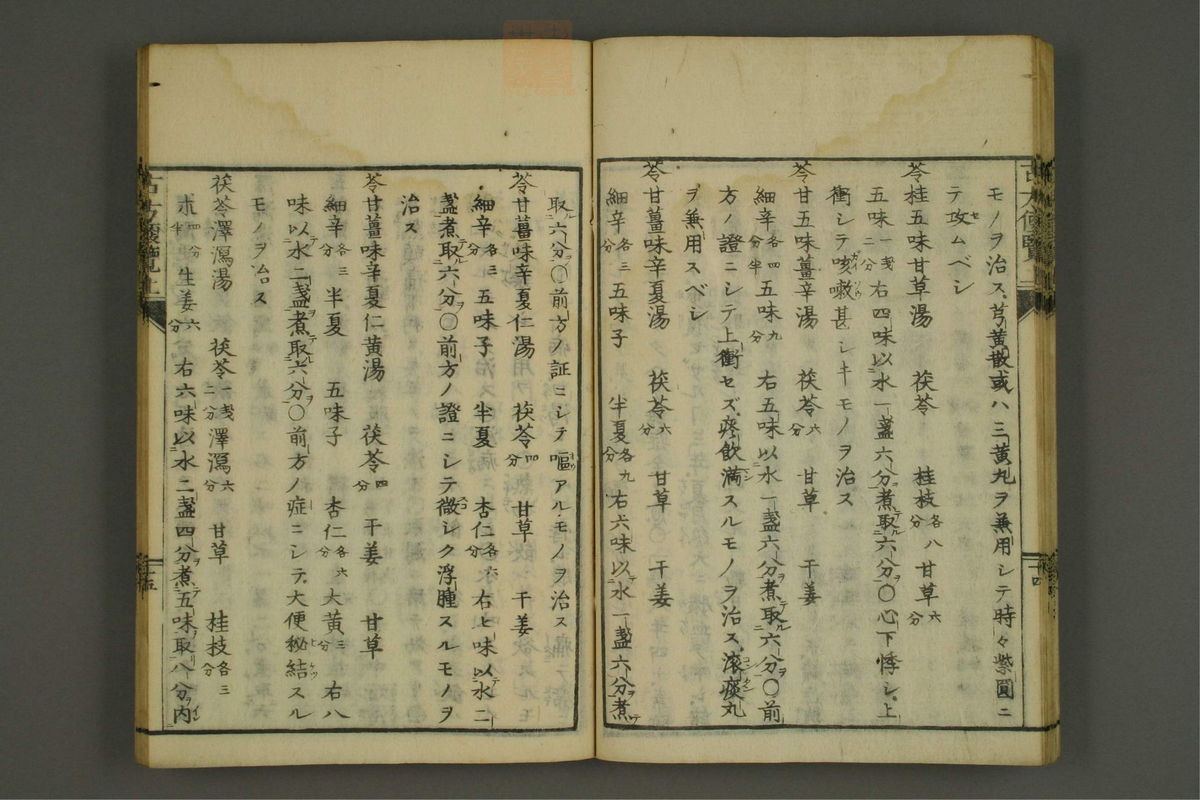 モノヲ治ス芎黄散或ハ三黄丸ヲ兼用シテ時々紫圓ニ
テ攻ムベシ
苓桂五味甘草湯 茯苓 桂枝各八分 甘草六分
五味二分一戔右四味以水一盞六分煮取六分〇心下悸シ上
衝シテ咳嗽甚シキモノヲ治ス
苓甘五味薑辛湯 茯苓六分 甘草 干姜
細辛各四分半 五味九分 右五味以水一盞六分煮取六分〇前
方ノ證ニシテ上衝セズ痰飲満スルモノヲ治ス滚痰丸
ヲ兼用スベシ
苓甘薑味辛夏湯 茯苓六分 甘草 干姜
細辛各三分 五味子 半夏各九分 右六味以水一盞六分煮
取六分〇前方ノ証ニシテ嘔アルモノヲ治ス
苓甘薑味辛夏仁湯 茯苓四分 甘草 干姜
細辛各三分 五味子 半夏 杏仁各六分 右七味以水二
盞煮取六分〇前方ノ證ニシテ微シク浮腫スルモノヲ
治ス
苓甘薑味辛夏仁黄湯 茯苓四分 干姜 甘草
細辛各三分 半夏 五味子 杏仁各六分 大黄三分 右八
味以水二盞煮取六分〇前方ノ症ニシテ大便秘結スル
モノヲ治ス
茯苓澤瀉湯 茯苓一戔二分 澤瀉六分 甘草 桂枝各三分
朮四分半 生姜六分 右六味以水二盞四分煮五味取八分内
古方便覧上
十四
古方便覧上
十五